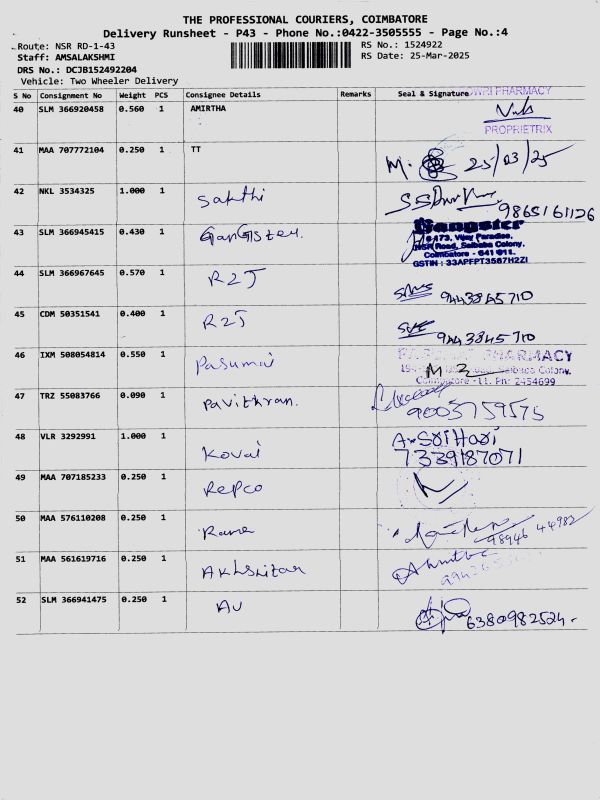 THE PROFESSIONAL COURIERS, COIMBATORE
Delivery Runsheet - P43 - Phone No.:0422-3505555 - Page No.:4
Route: NSR RD-1-43
RS No.: 1524922
Staff: AMSALAKSHMI
RS Date: 25-Mar-2025
DRS No.: DCJB152492204
Vehicle: Two Wheeler Delivery
S No Consignment No Weight PCS Consignee Details Remarks Seal & Signature
PHARMACY
40 SLM 366920458 0.560 1 AMIRTHA
PROPRIETRIX
41 MAA 707772104 0.250 1 TT
M. 25/03/25
42 NKL 3534325 1.000 1 Sakthi
9865161126
43 SLM 366945415 0.430 1 Gangster.
Gangster
173, Vijay Paradise,
NSR Road, Saibaba Colony,
Coimbatore - 641 011.
GSTIN : 33APFPT3567H2ZI
44 SLM 366967645 0.570 1 R2J
9443845710
45 CDM 50351541 0.400 1 R2J
9443845710
46 IXM 508054814 0.550 1 Pasumai
PHARMACY
Saibaba Colony,
Coimbatore - 11. Ph: 2454699
47 TRZ 55083766 0.090 1 Pavithran.
9003759575
48 VLR 3292991 1.000 1 Kovai
A. Sri Hari
7339187071
49 MAA 707185233 0.250 1 Repco
50 MAA 576110208 0.250 1 Rane
98946 44982
51 MAA 561619716 0.250 1 Akhshitar
52 SLM 366941475 0.250 1 AU
6380982524.